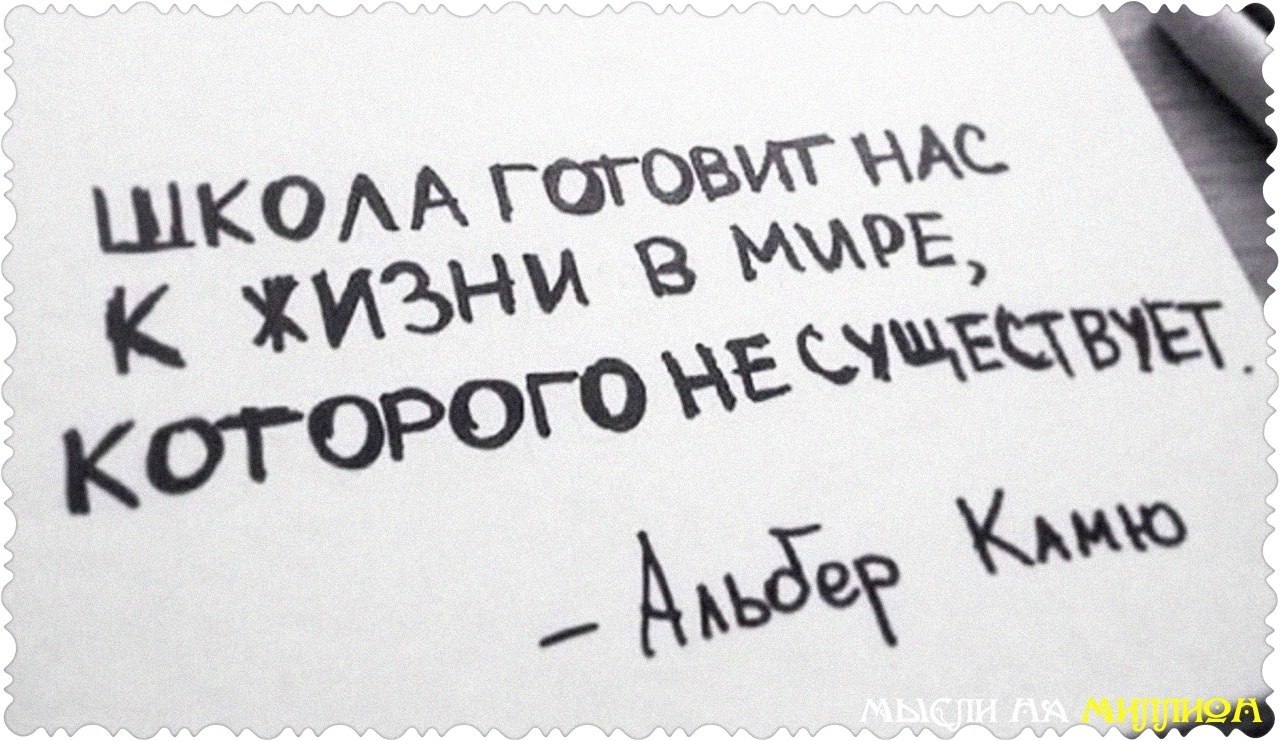 ШКОЛА ГОТОВИТ НАС
К ЖИЗНИ В МИРЕ,
КОТОРОГО НЕ СУЩЕСТВУЕТ.
- Альбер Камю
МЫСЛИ НА МИЛЛИОН